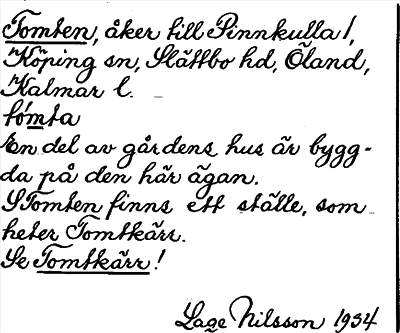 Tomten, åker till Pinnkulla 1,
Köping sn, Slättbo hd, Öland,
Kalmar l.
tómta
En del av gårdens hus är bygg-
da på den här ägan.
I Tomten finns ett ställe, som
heter Tomtkärr.
Se Tomtkärr!
Lage Nilsson 1934